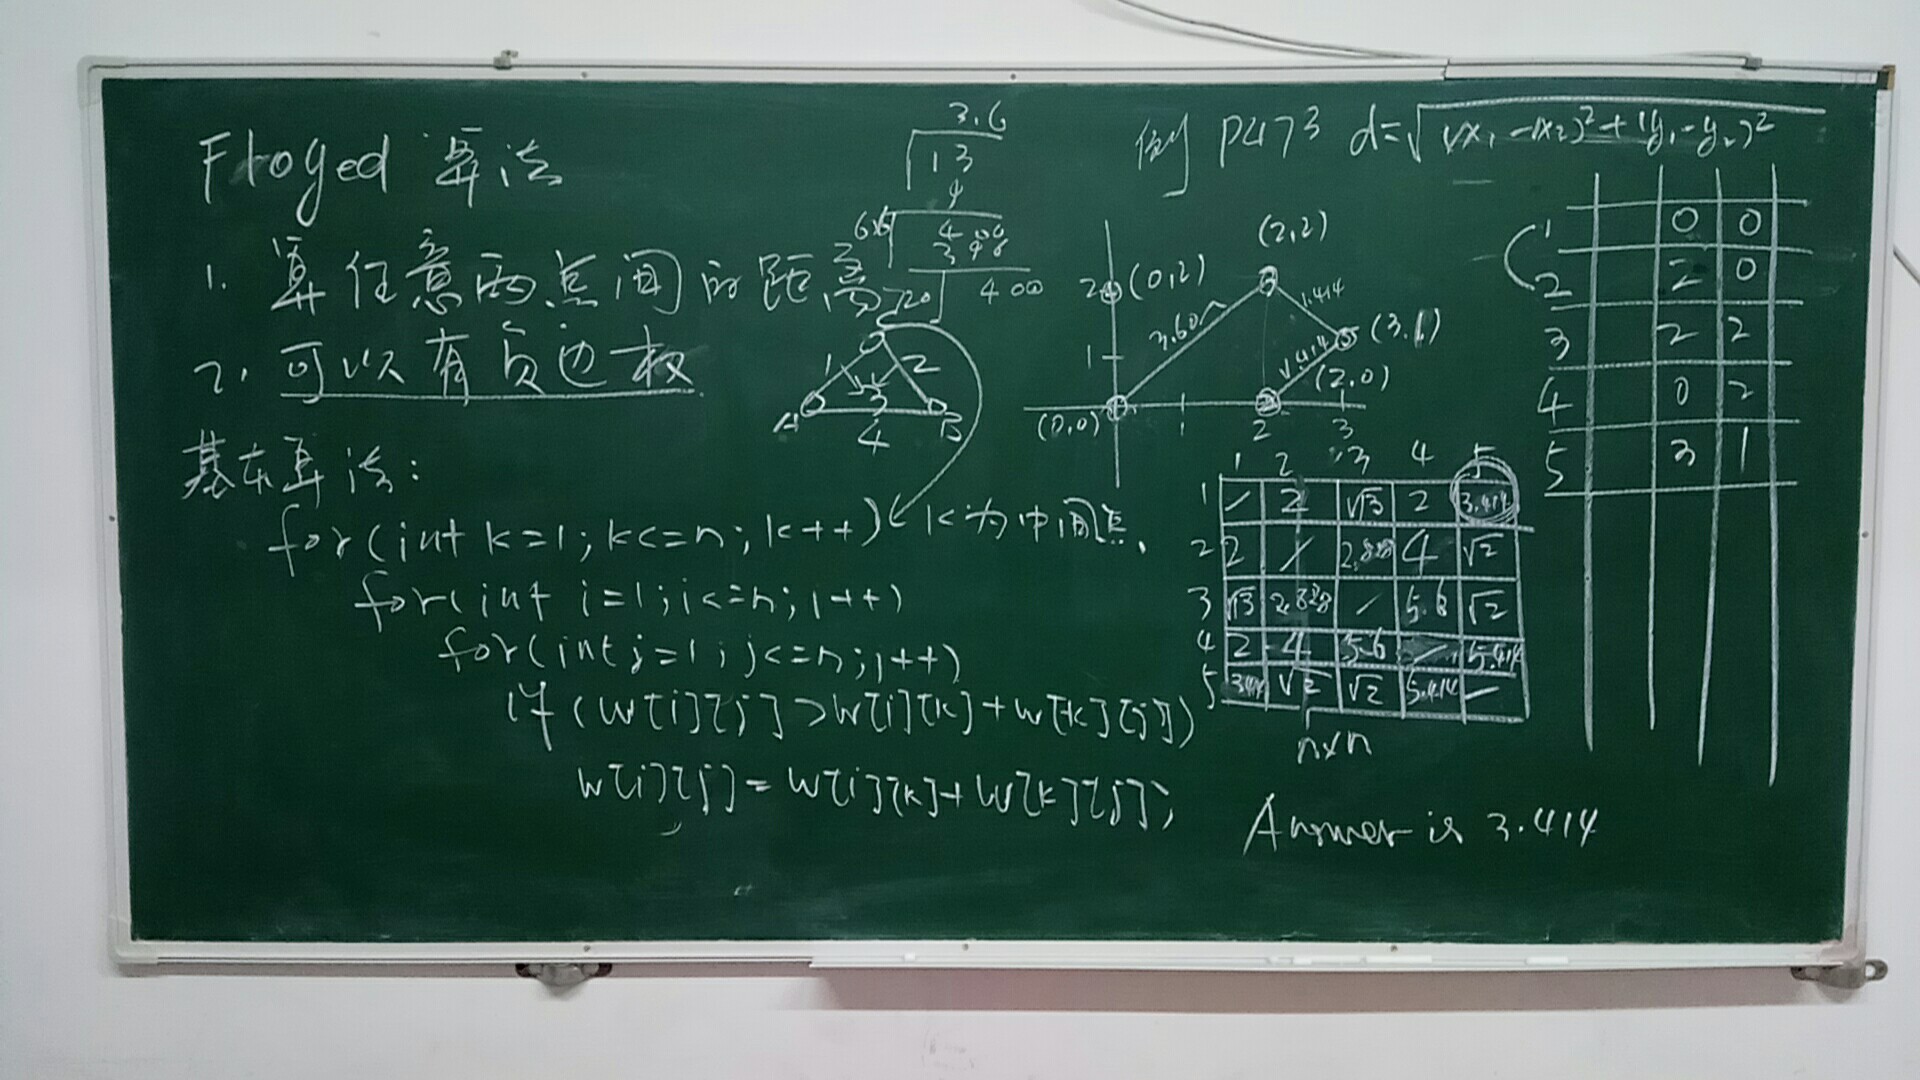 Floyed 算法
1. 算任意两点间的距离
2. 可以有负边权
基本算法:
for(int k=1;k<=n;k++) ← k为中间点.
for(int i=1;i<=n;i++)
for(int j=1;j<=n;j++)
if (w[i][j]>w[i][k]+w[k][j])
w[i][j]=w[i][k]+w[k][j];
3.6
13
4
400
400
1 2
3
A B
4
例 P473 d=√(x₁-x₂)²+(y₁-y₂)²
(2,2)
2 (0,2)
1.414
3.60
(3.1)
1
1.414
(2,0)
(0,0) 1 2 3
1 2 3 4 5
1 / 2 √3 2 3.414
2 2 / 2.828 4 √2
3 √3 2.828 / 5.6 √2
4 2 4 5.6 / 5.414
5 3.414 √2 √2 5.414 /
n×n
Answer is 3.414
1 0 0
2 2 0
3 2 2
4 0 2
5 3 1